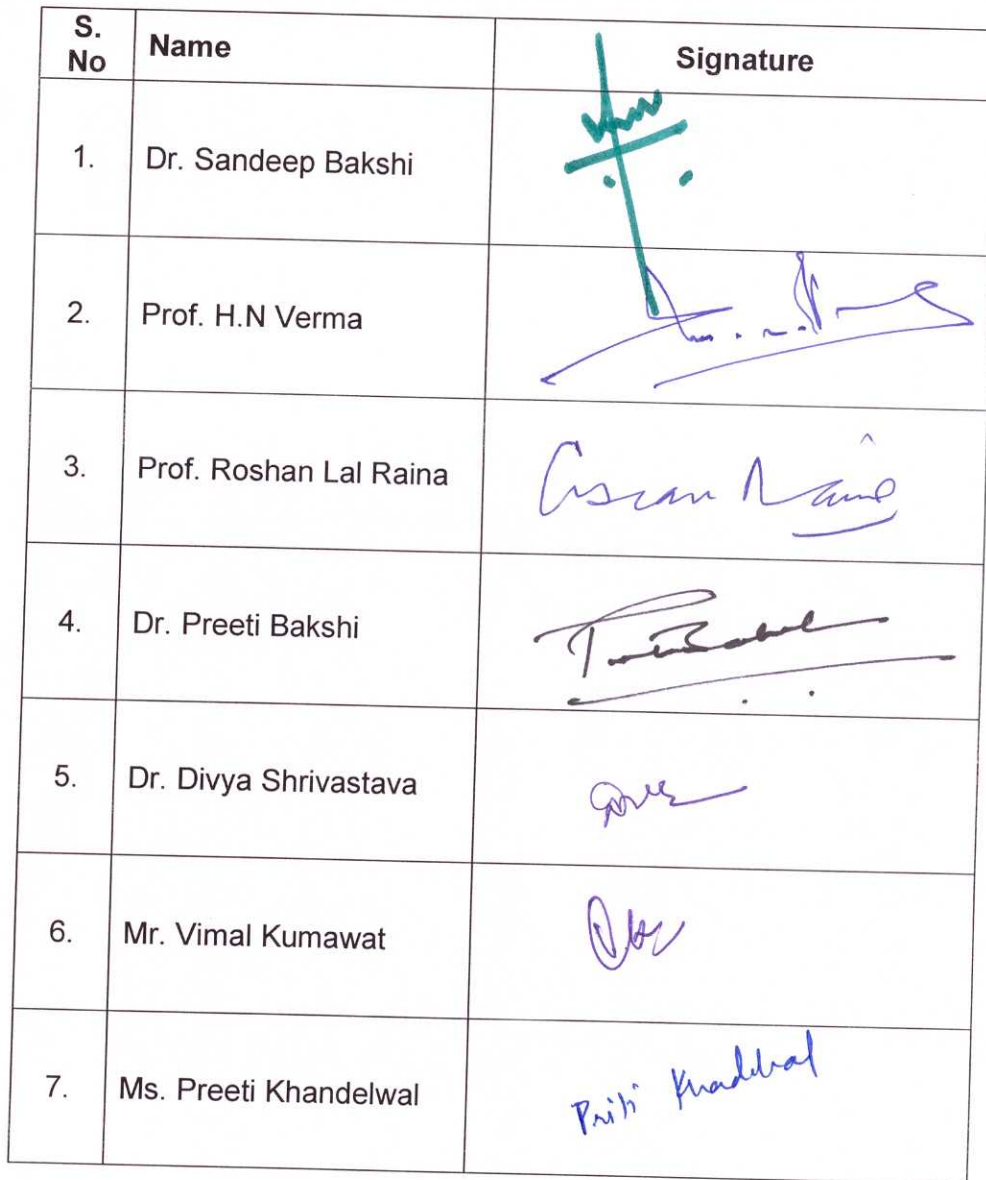 S. No Name Signature
1. Dr. Sandeep Bakshi
2. Prof. H.N Verma
3. Prof. Roshan Lal Raina
4. Dr. Preeti Bakshi
5. Dr. Divya Shrivastava
6. Mr. Vimal Kumawat
7. Ms. Preeti Khandelwal